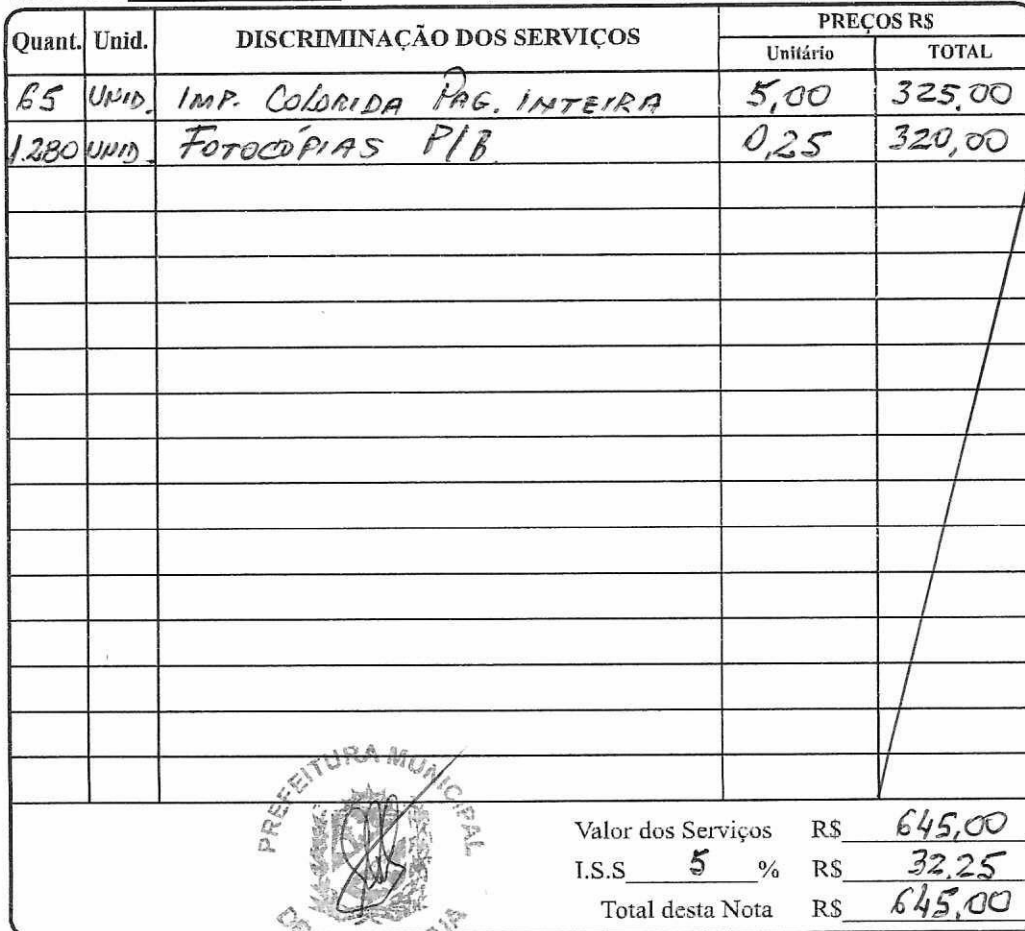 Quant. Unid. DISCRIMINAÇÃO DOS SERVIÇOS PREÇOS R$
Unitário TOTAL
65 UNID. IMP. COLORIDA PAG. INTEIRA 5,00 325,00
1.280 UNID. FOTOCÓPIAS P/B 0,25 320,00
PREFEITURA MUNICIPAL
Valor dos Serviços R$ 645,00
I.S.S 5 % R$ 32,25
Total desta Nota R$ 645,00